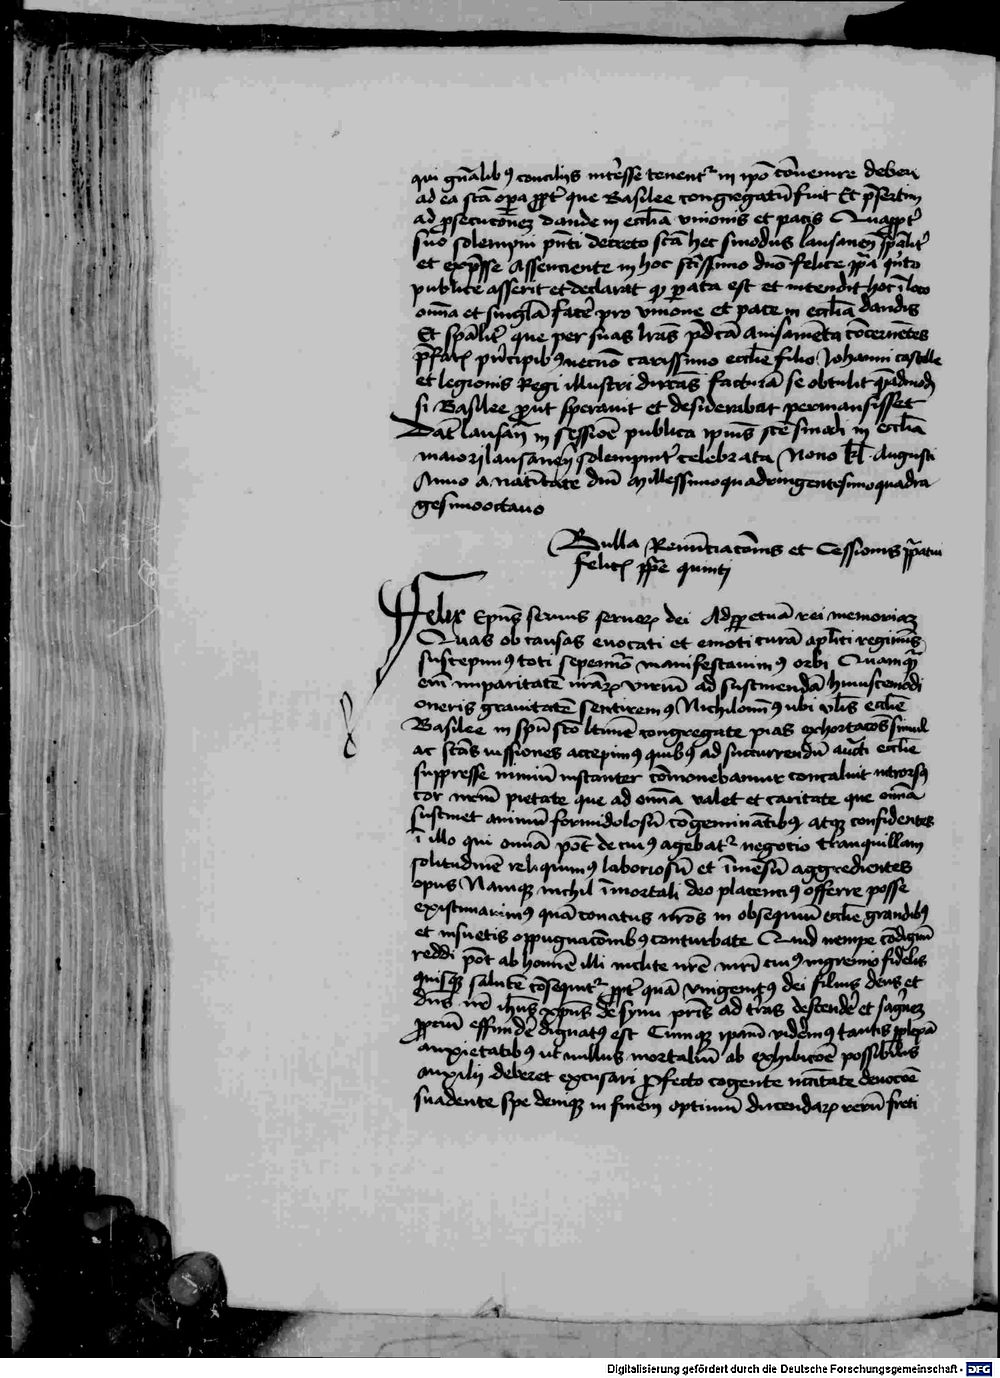 qui gn̄alibꝰ conciliis int̄esse tenentᷣ in ip̄o cōuenire deben̄
ad ea sc̄a op̄a ꝓpt̄ que Basilee congregatū fuit Et p̄sertim
ad ꝓsecucōnez dande in eccl̄ia vnionis et pacis Quaꝓpt̄
suo solempni pn̄ti decreto sc̄a hec sinodus lausaneñ sp̄alit̄
et exp̄sse Assenciente in hoc sc̄issimo dn̄o felice pp̄a qn̄to
publice asserit et declarat ꝙ ꝑata est et intendit hoc ī loco
om̄ia et singl̄a facē pro vnione et pace in eccl̄ia dandis
Et sp̄alit̄ que per suas lr̄as p̄dc̄ā auisamēta cōcernētes
p̄fatꝭ p̄ncipibꝰ necnō carissimo eccl̄ie filio Johanni castelle
et legionis Regi illustri dirc̄as facturā se obtulit qūadmodꝫ
si Basilee ꝓut sperauit et desiderabat permansisset
Dat̄ lausañ in sessiōe publica ip̄ius sc̄e sinodi in eccl̄ia
maiori lausaneñ solempnit̄ celebrata Nono kl̄ Augusti
Anno a natiūtate dn̄i Millessimoquadringentesimoquadra
gesimooctauo
Bulla Renūciacōnis et Cessionis pp̄atui
felicꝭ pp̄e quinti
Felix Ep̄us seruus seruoꝝ dei Ad ꝑpetuā rei memoriaꝫ
Quas ob causas euocati et emōti curā apl̄ici regimīs
suscepimꝰ toti sepenūo manifestauimꝰ orbi Quamqꝫ
em̄ imparitatē nr̄aꝝ viriū ad sustinendā huiuscemodi
oneris grauitatē sentiremꝰ Nichilominꝰ ubi vl̄is eccl̄ie
Basilee in sp̄u sc̄o l̄time congregate pias exhortacōes simul
ac sc̄as iussiones accepimꝰ quibꝰ ad succurrendū aūcti eccl̄ie
suppresse nimiū instanter cōmonebamur concaluit introrsꝰ
cor nr̄m pietate que ad om̄ia valet et caritate que om̄ia
sustinet animū formidolosū cōgeminātibꝰ atqꝫ confidentes
ī illo qui om̄ia pōt de cuiꝰ agebatᷣ negocio tranquillam
solitudinē reliquimꝰ laboriosū et īmēsū aggredientes
opus Namqꝫ nichil īmortali deo placenciꝰ offerre posse
existimauimꝰ quā conatus nr̄os in obsequiū eccl̄ie grandibꝰ
et insuetis oppugnacōnibꝰ conturbate Quid nempe cōdignū
reddi pōt ab homīe illi inclite nr̄e mr̄i cuiꝰ in gremio fidelis
quisqꝫ salutē cōsequitᷣ ꝓpt̄ quā vnigenitꝰ dei filius deus et
dn̄s nr̄ ih̄us xp̄us de synu pr̄is ad tr̄as descendē et sāgnez
ꝓpriū effundē dignatꝰ est Cumqꝫ ip̄am vidēmꝰ tantis ꝑplexā
anxietatibꝰ ut nullus mortaliū ab exhibicōe possibilis
auxilii deberet excusari ꝓfecto cogente nc̄itate deuocōe
suadente spe deniqꝫ in finem optimū ducendaꝝ rerū freti
Digitalisierung gefördert durch die Deutsche Forschungsgemeinschaft - DFG